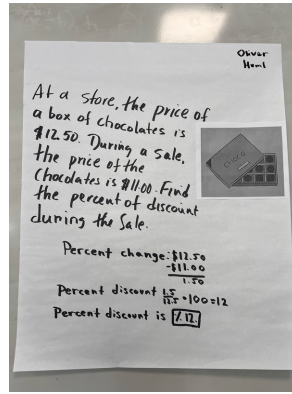 Oliver
Haml
At a store, the price of
a box of chocolates is
$12.50. During a sale,
the price of the
Chocolates is $11.00. Find
the percent of discount
during the sale.
CHOCO
Percent change: $12.50
-$11.00
1.50
Percent discount 1.5/12.5 • 100 = 12
Percent discount is % 12